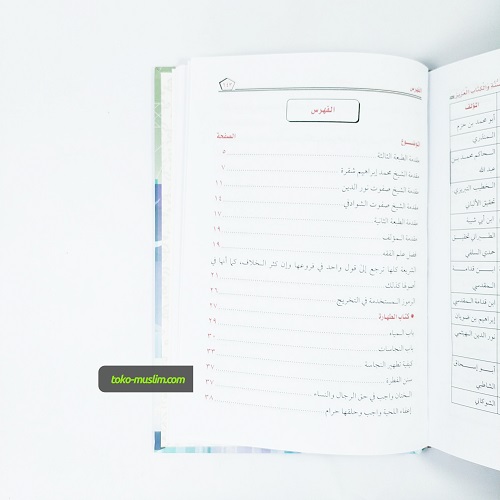 الفهرس
٦٤٣
الفهرس
الموضوع
الصفحة
مقدمة الطبعة الثالثة ٥
مقدمة الشيخ محمد إبراهيم شقرة ٧
مقدمة الشيخ صفوت نور الدين ١١
مقدمة الشيخ صفوت الشوادفي ١٤
مقدمة الطبعة الثانية ١٧
مقدمة المؤلف ١٩
فضل علم الفقه ١٩
الشريعة كلها ترجع إلى قول واحد في فروعها وإن كثر الخلاف، كما أنها في
أصولها كذلك ٢١
الرموز المستخدمة في التخريج ٢٦
• كتاب الطهارة ٢٧
باب المياه ٢٩
باب النجاسات ٣٠
كيفية تطهير النجاسة ٣٣
سنن الفطرة ٣٧
الختان واجب في حق الرجال والنساء ٣٧
إعفاء اللحية واجب وحلقها حرام ٣٨
المؤلف
أبو محمد بن حزم
المنذري
الخطيب التبريزي
تحقيق الألباني
ابن أبي شيبة
الطبراني تحقيق
حمدي السلفي
ابن قدامة
المقدسي
ابن قدامة المقدسي
إبراهيم بن ضويان
نور الدين الهيثمي
الشاطبي
الشوكاني
toko-muslim.com